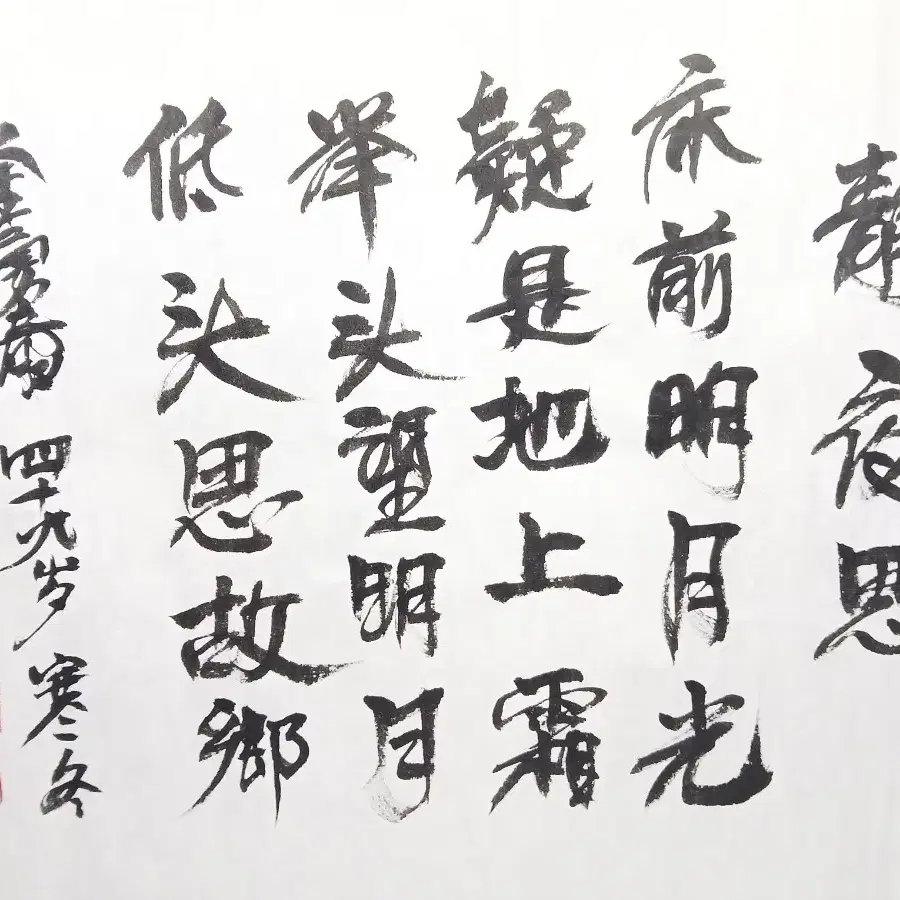 静夜思
床前明月光
疑是地上霜
举头望明月
低头思故乡
四十九岁 寒冬